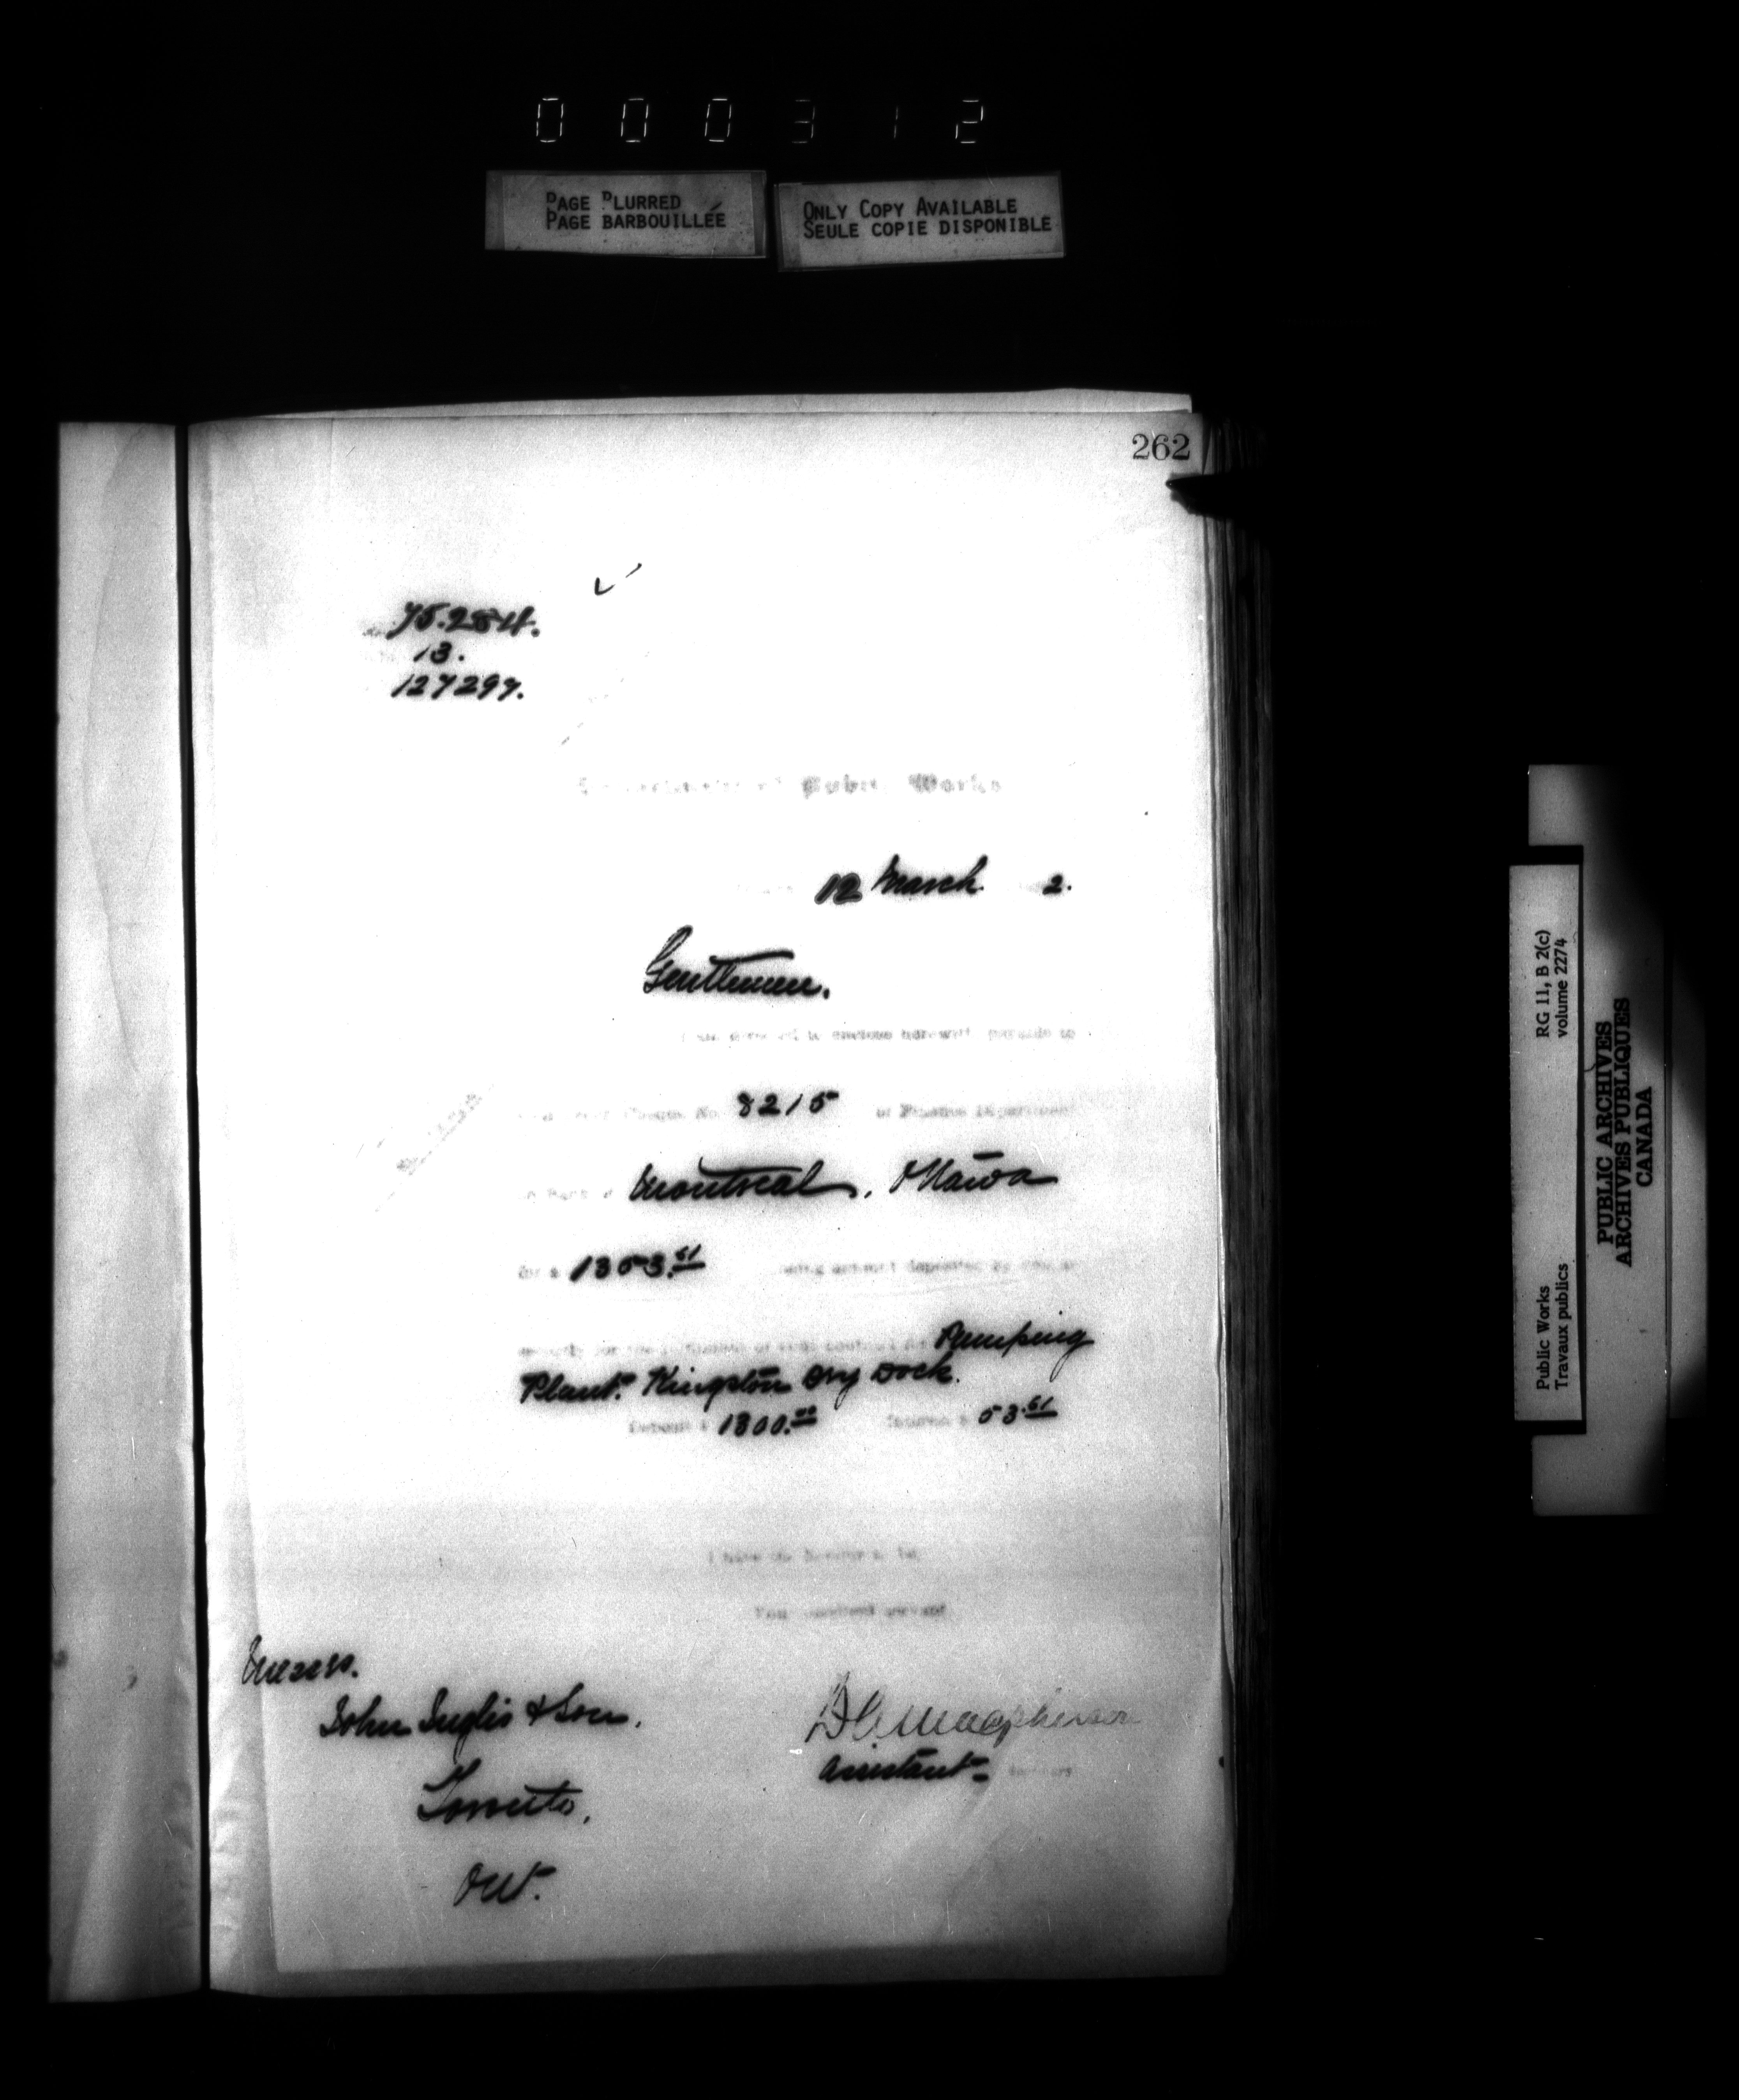 000312
PAGE BLURRED
PAGE BARBOUILLÉE
ONLY COPY AVAILABLE
SEULE COPIE DISPONIBLE
262
75.284.
13.
127297.
Works
12 March 2.
Gentlemen.
enclose herewith payable to
Cheque No. 8215 of Finance Department
Bank of Montreal, Ottawa
for $ 1353.61 being amount deposited by you as
security for the fulfilment of your contract for Pumping
Plant. Kingston Dry Dock.
Deposit $ 1300.00 Interest $ 53.61
I have the honour to be,
Your obedient servant
Messrs.
John Inglis & Son,
Toronto,
Ont.
D A Macpherson
Assistant-
RG 11, B 2(c)
volume 2274
Public Works
Travaux publics
PUBLIC ARCHIVES
ARCHIVES PUBLIQUES
CANADA